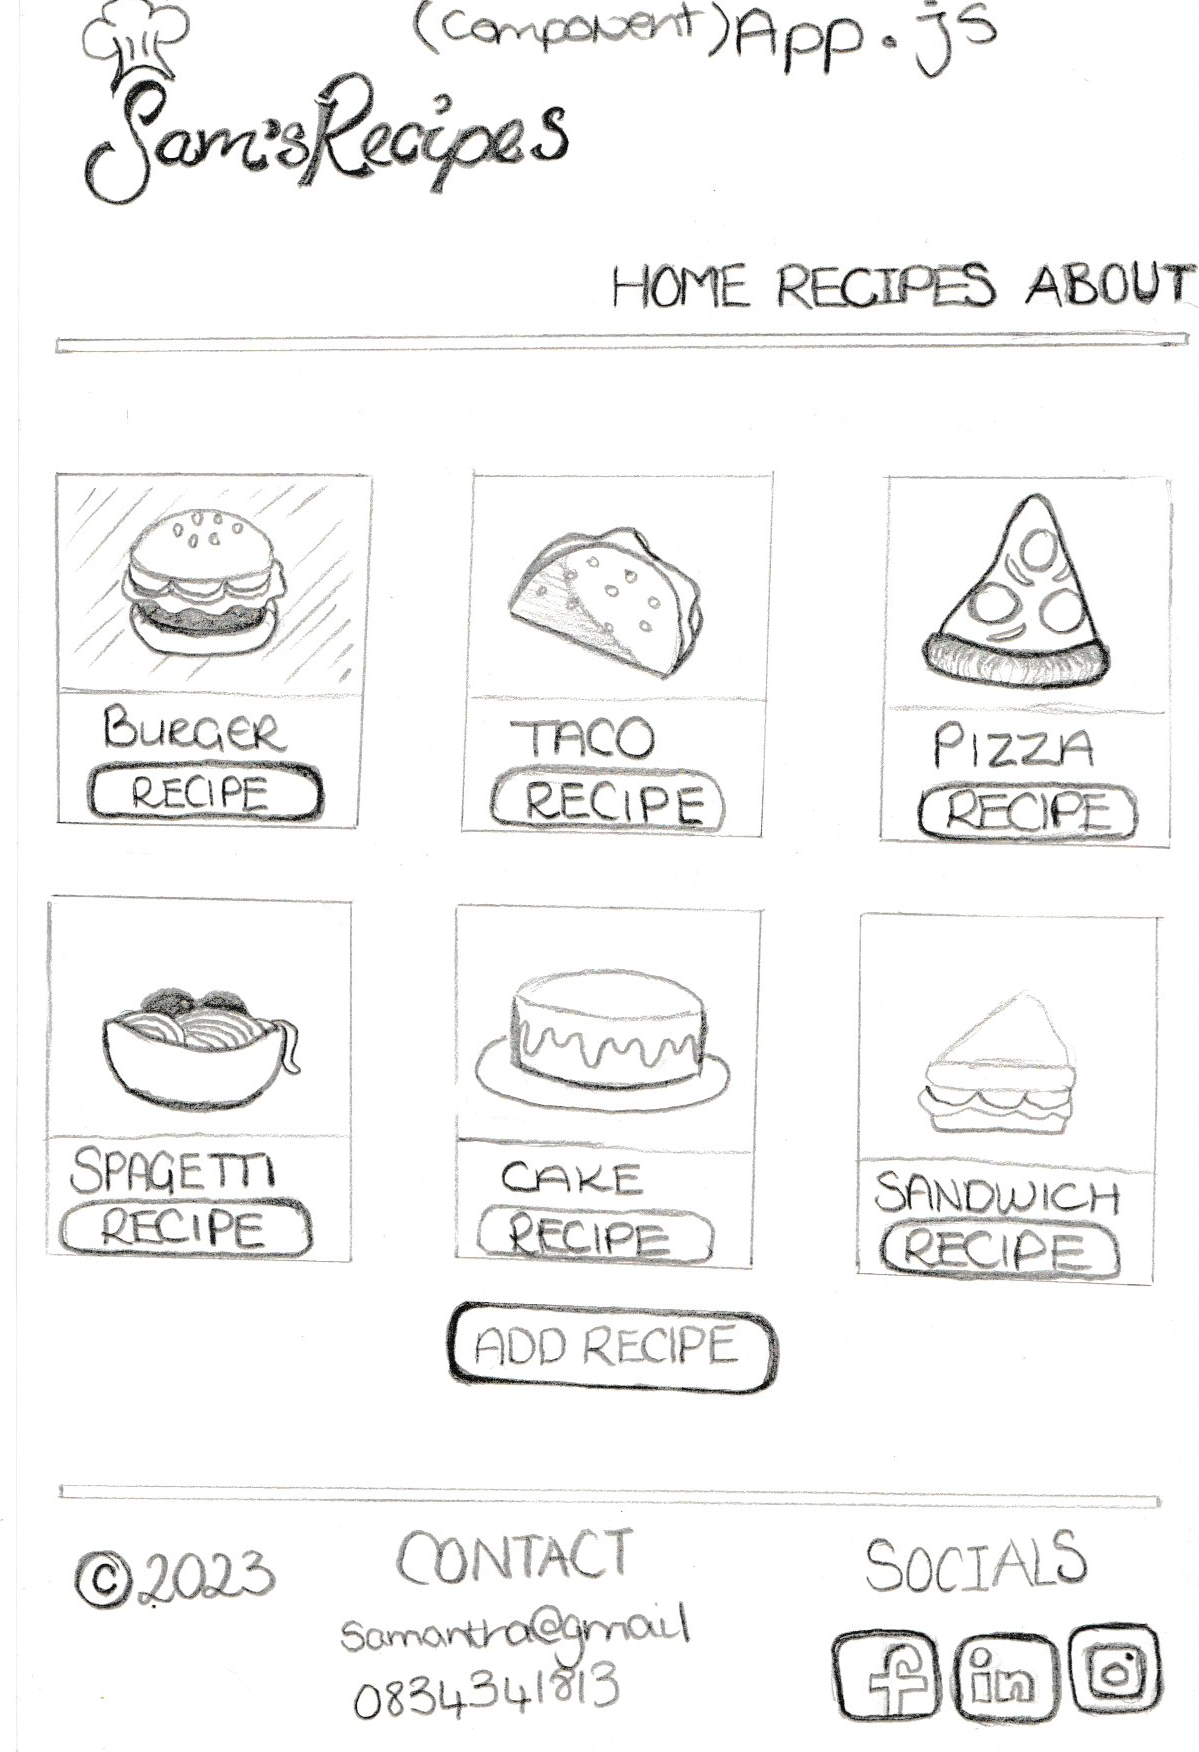 (Component) App.js
Sam's Recipes
HOME RECIPES ABOUT
BURGER
RECIPE
TACO
RECIPE
PIZZA
RECIPE
SPAGETTI
RECIPE
CAKE
RECIPE
SANDWICH
RECIPE
ADD RECIPE
©2023
CONTACT
Samantha@gmail
0834341813
SOCIALS
f
in